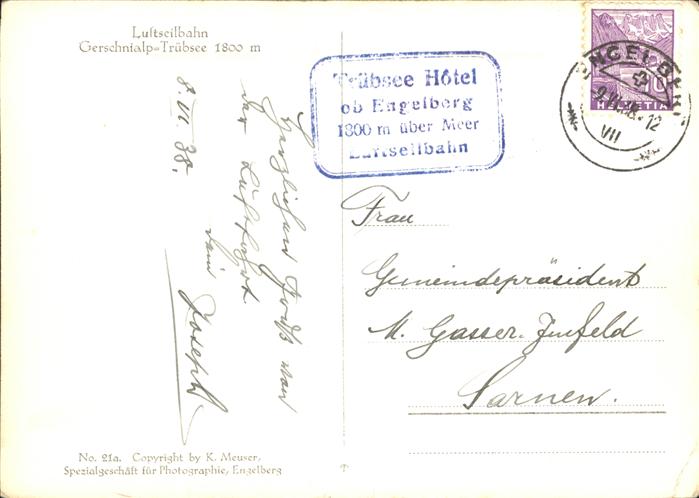 Luftseilbahn
Gerschnialp=Trübsee 1800 m
8. VI. 38.
Herzlichen Gruß von
der Luftfahrt
dein Joseph
Trübsee Hôtel
ob Engelberg
1800 m über Meer
Luftseilbahn
ENGELBERG
9.VI.38. 12
VII
10
HELVETIA
Frau
Gemeindepräsident
M. Gasser-Imfeld
Sarnen.
No. 21a. Copyright by K. Meuser,
Spezialgeschäft für Photographie, Engelberg